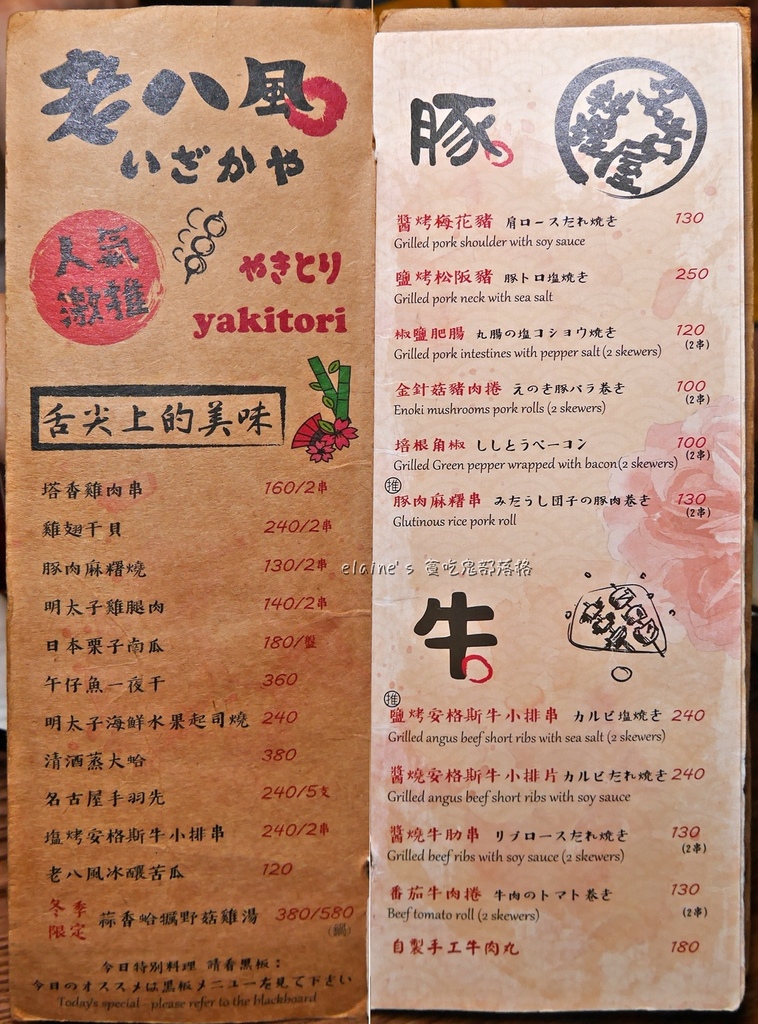 老八風
いざかや
人氣
激推
やきとり
yakitori
舌尖上的美味
塔香雞肉串 160/2串
雞翅干貝 240/2串
豚肉麻糬燒 130/2串
明太子雞腿肉 140/2串
日本栗子南瓜 180/盤
午仔魚一夜干 360
明太子海鮮水果起司燒 240
清酒蒸大蛤 380
名古屋手羽先 240/5支
塩烤安格斯牛小排串 240/2串
老八風冰釀苦瓜 120
冬季
限定 蒜香蛤蠣野菇雞湯 380/580
(鍋)
今日特別料理 請看黑板：
今日のオススメは黒板メニューを見て下さい
Today's special - please refer to the blackboard
豚
醬烤梅花豬 肩ロースだれ焼き 130
Grilled pork shoulder with soy sauce
鹽烤松阪豬 豚トロ塩焼き 250
Grilled pork neck with sea salt
椒鹽肥腸 丸腸の塩コショウ焼き 120
Grilled pork intestines with pepper salt (2 skewers) (2串)
金針菇豬肉捲 えのき豚バラ巻き 100
Enoki mushrooms pork rolls (2 skewers) (2串)
培根角椒 ししとうベーコン 100
Grilled Green pepper wrapped with bacon (2 skewers) (2串)
推
豚肉麻糬串 みたらし団子の豚肉巻き 130
Glutinous rice pork roll (2串)
elaine's 貪吃鬼部落格
牛
推
鹽烤安格斯牛小排串 カルビ塩焼き 240
Grilled angus beef short ribs with sea salt (2 skewers)
醬燒安格斯牛小排片 カルビだれ焼き 240
Grilled angus beef short ribs with soy sauce
醬燒牛肋串 リブロースだれ焼き 130
Grilled beef ribs with soy sauce (2 skewers) (2串)
番茄牛肉捲 牛肉のトマト巻き 130
Beef tomato roll (2 skewers) (2串)
自製手工牛肉丸 180